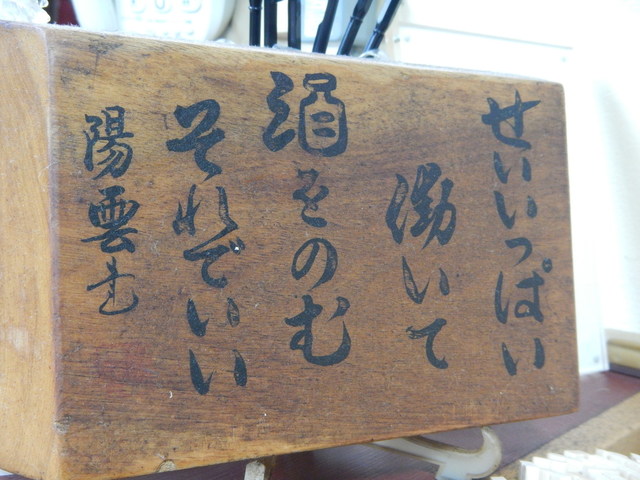 せいいっぱい
働いて
酒をのむ
それでいい
陽雲